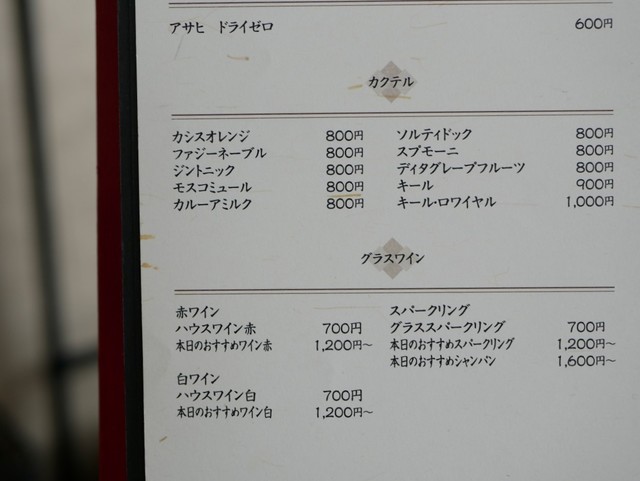 アサヒ ドライゼロ 600円
カクテル
カシスオレンジ 800円
ファジーネーブル 800円
ジントニック 800円
モスコミュール 800円
カルーアミルク 800円
ソルティドック 800円
スプモーニ 800円
ディタグレープフルーツ 800円
キール 900円
キール・ロワイヤル 1,000円
グラスワイン
赤ワイン
ハウスワイン赤 700円
本日のおすすめワイン赤 1,200円〜
白ワイン
ハウスワイン白 700円
本日のおすすめワイン白 1,200円〜
スパークリング
グラススパークリング 700円
本日のおすすめスパークリング 1,200円〜
本日のおすすめシャンパン 1,600円〜